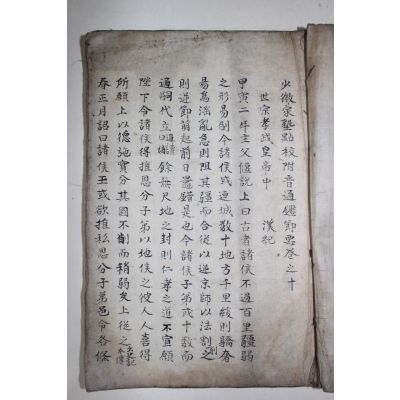 少微家塾點校附音通鑑節要卷之十
世宗孝武皇帝中　漢紀
甲寅二年主父偃說上曰古者諸侯不過百里彊弱
之形易制今諸侯或連城數十地方千里緩則驕奢
易爲淫亂急則阻其彊而合從以逆京師以法割削之
則逆節萌起前日鼂錯是也今諸侯子弟或十數而
適嗣代立餘無尺地之封則仁孝之道不宣願
陛下令諸侯得推恩分子弟以地侯之彼人人喜得
所願上以德施實分其國不削而稍弱矣上從之
春正月詔曰諸侯王或欲推私恩分子弟邑令各條